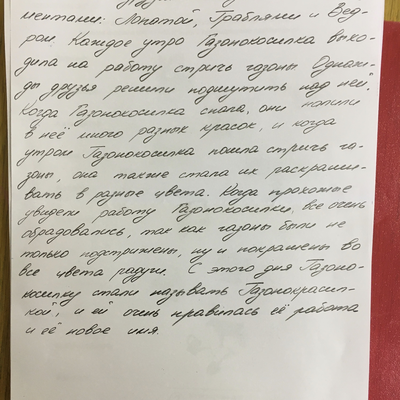 ментами: Лопатой, Граблями и Вед-
ром. Каждое утро Газонокосилка выхо-
дила на работу стричь газоны. Однаж-
ды друзья решили подшутить над ней,
когда Газонокосилка спала, они налили
в неё много разных красок, и когда
утром Газонокосилка пошла стричь га-
зоны, она также стала их раскраши-
вать в разные цвета. Когда прохожие
увидели работу Газонокосилки, все очень
обрадовались, так как газоны были не
только подстрижены, ну и покрашены во
все цвета радуги. С этого дня Газоно-
косилку стали называть "Газонокрасил-
кой", и ей очень нравилась её работа
и её новое имя.